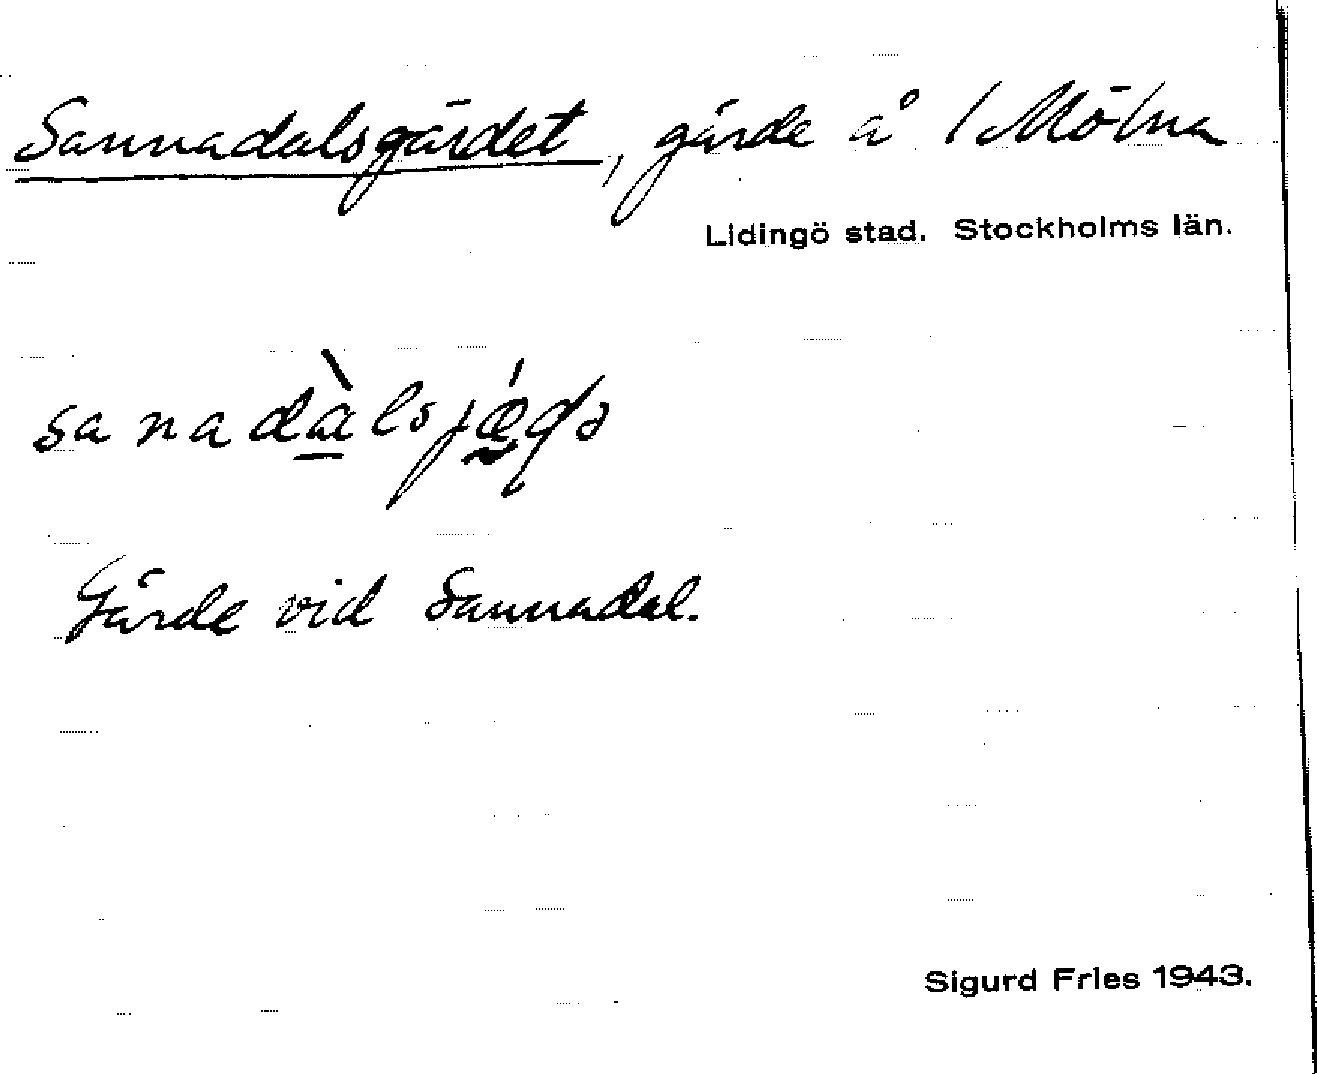 Sannadalsgärdet, gärde å 1 Mölna
Lidingö stad. Stockholms län.
Gärde vid Sannadal.
Sigurd Fries 1943.